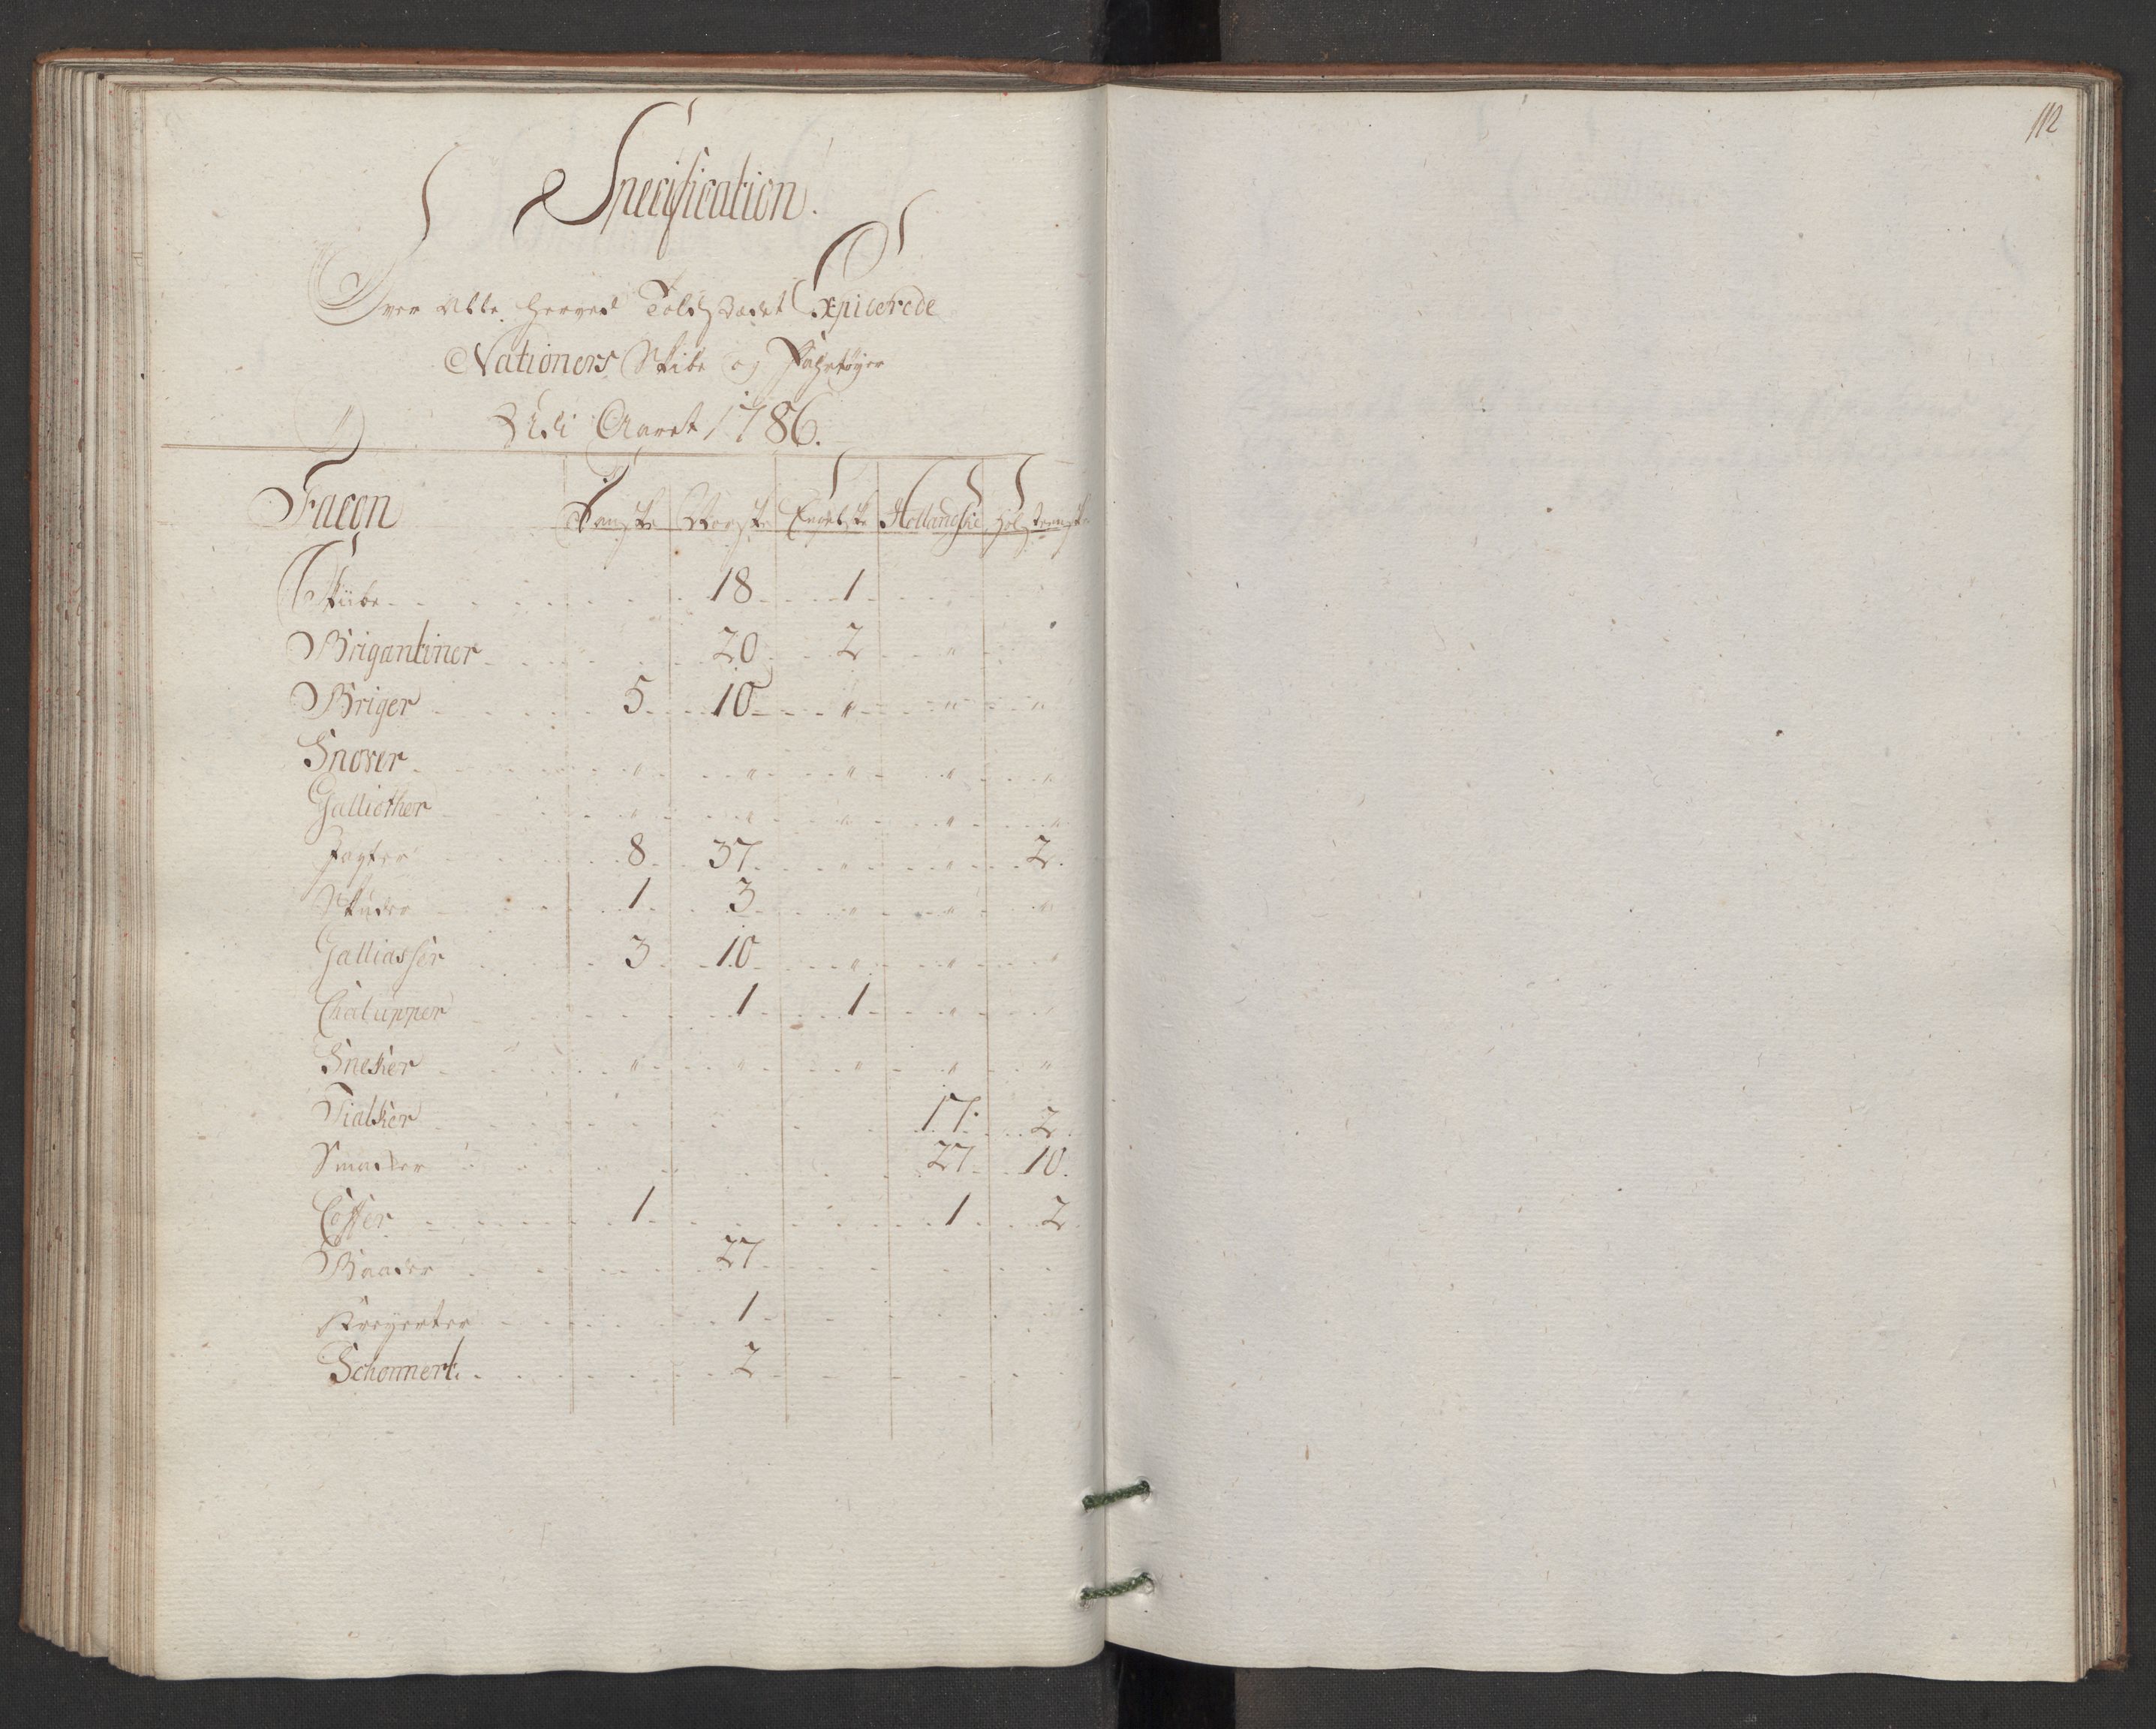 112
Specification.
Over Alle herved Toldstædet Expiderede
Nationers Skibe og Fahrtøyer
Udi Aaret 1786.
Facon Danske Norske Engelske Hollandske Holsteenske
Skibe 18 1
Brigantiner 20 2 "
Briger 5 10 " " "
Snover " " " " "
Galliother " " " " "
Jagter 8 37 " " 2
Skuder 1 3 " " "
Galliasser 3 10 " " "
Chalupper 1 1 " "
Sneker " " " " "
Tialker 17 2
Smacker 27 10
Coffer 1 1 2
Baader 27
Kreyerter 1
Schonnert 2